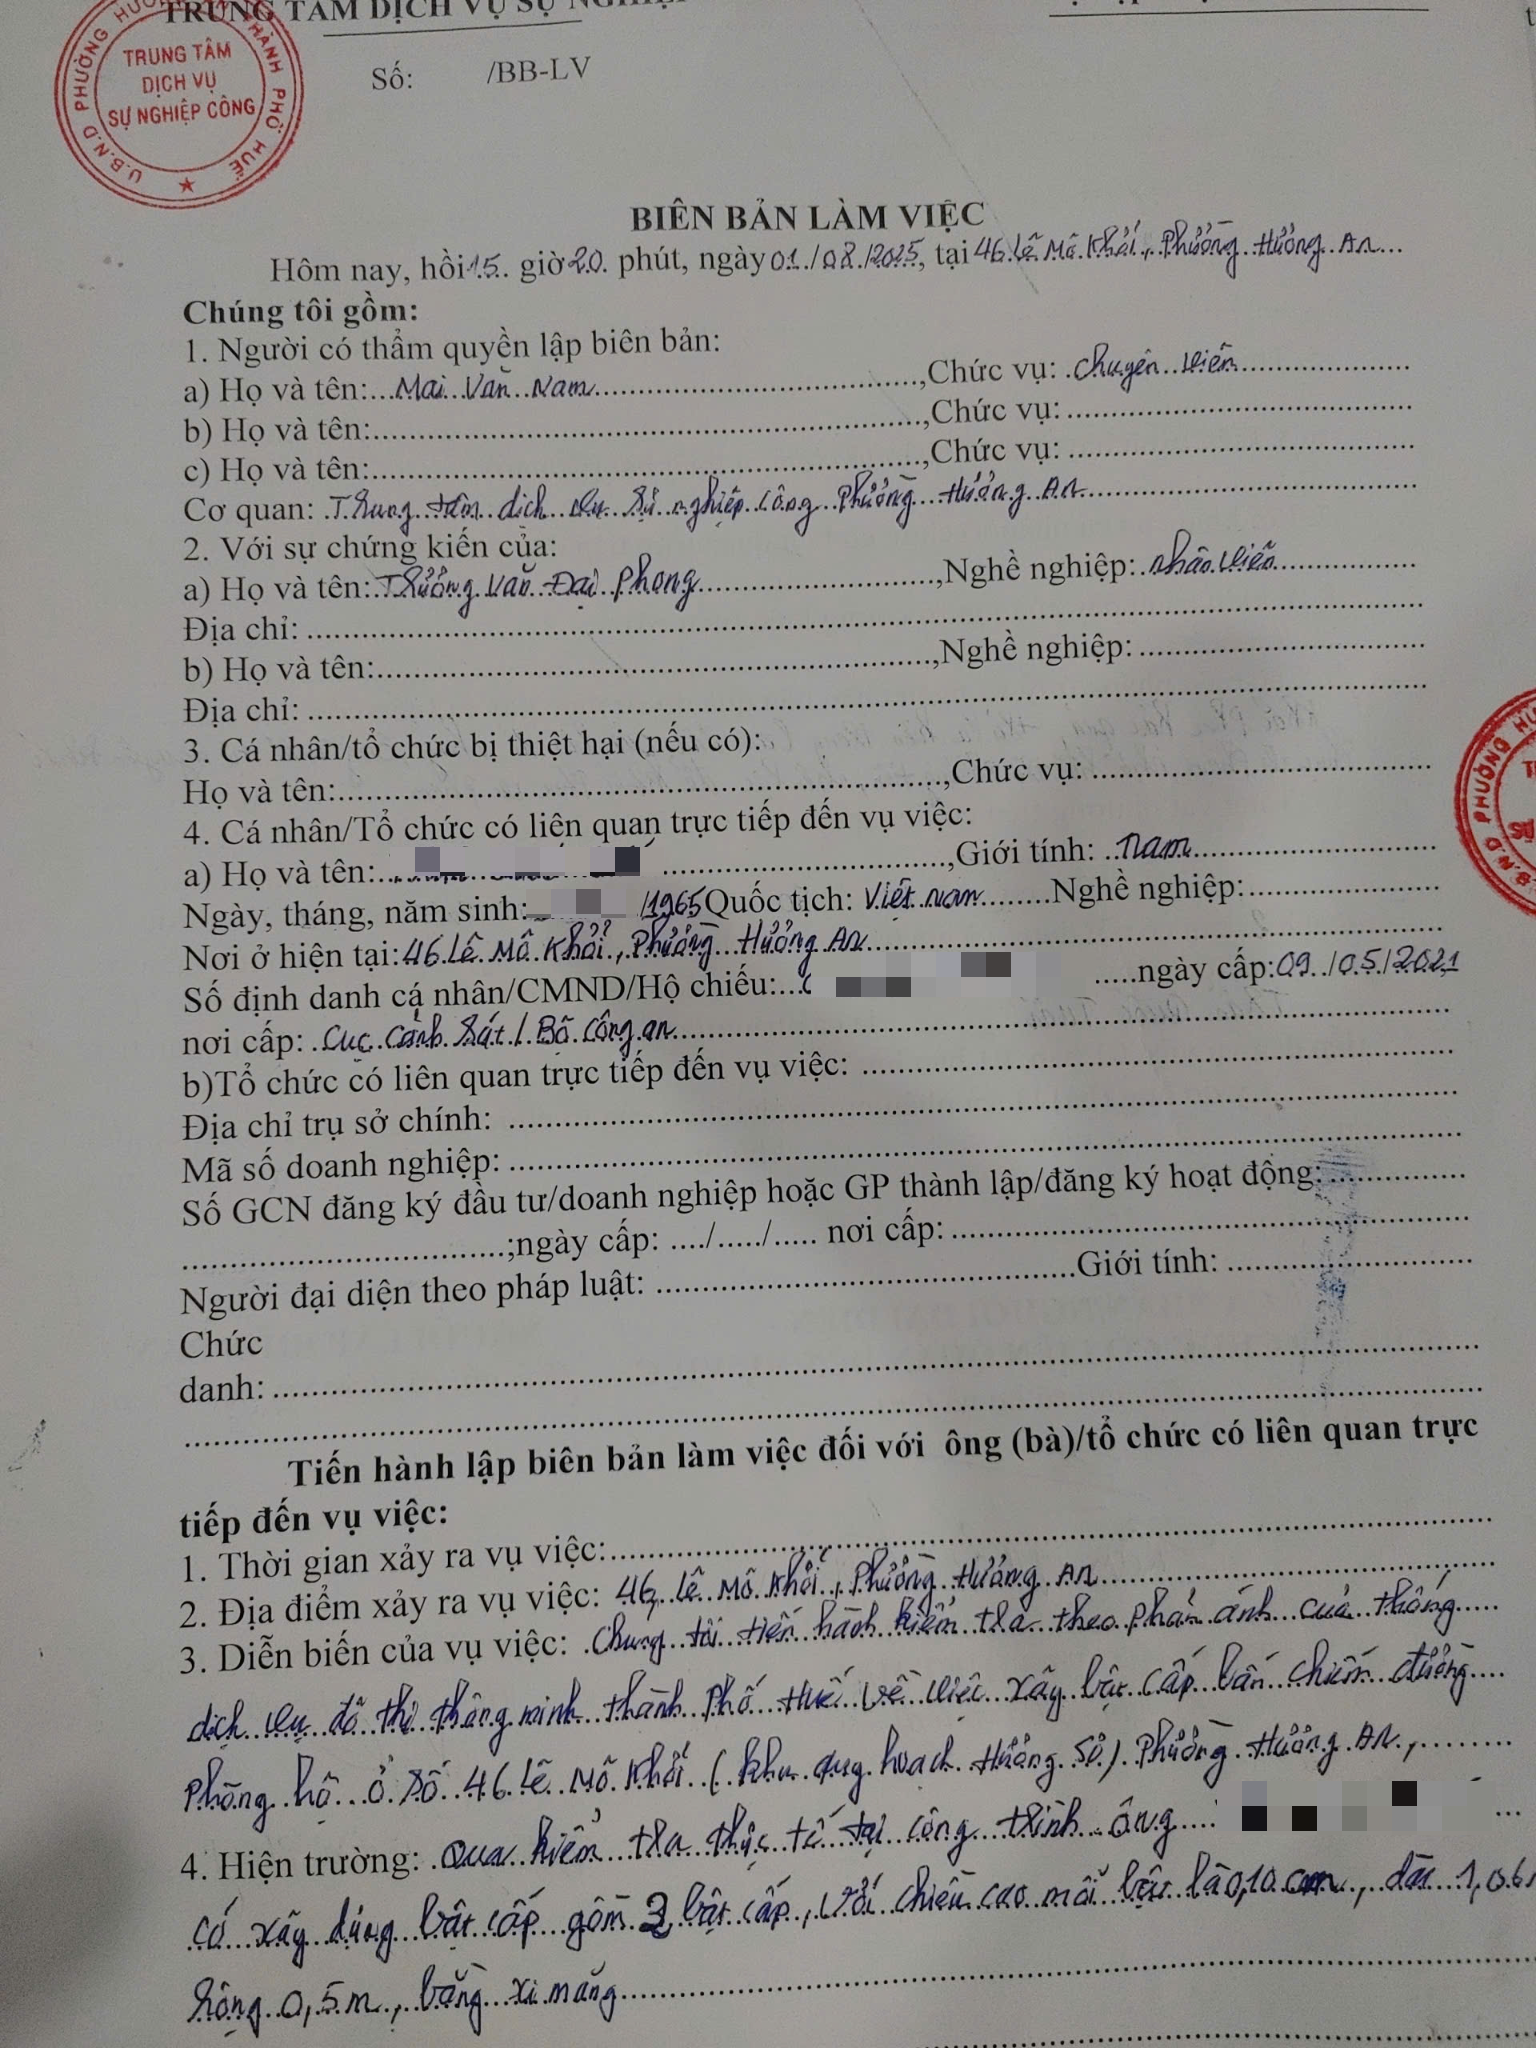 TRUNG TÂM DỊCH VỤ SỰ NGHIỆP
U.B.N.D PHƯỜNG HƯƠNG THÀNH PHỐ HUẾ
TRUNG TÂM
DỊCH VỤ
SỰ NGHIỆP CÔNG
Số: /BB-LV
BIÊN BẢN LÀM VIỆC
Hôm nay, hồi 15 giờ 20 phút, ngày 01/08/2025, tại 46 Lê Mô Khải, Phường Hương An
Chúng tôi gồm:
1. Người có thẩm quyền lập biên bản:
a) Họ và tên: Mai Văn Nam, Chức vụ: chuyên viên
b) Họ và tên:, Chức vụ:
c) Họ và tên:, Chức vụ:
Cơ quan: Trung tâm dịch vụ sự nghiệp công Phường Hương An
2. Với sự chứng kiến của:
a) Họ và tên: Trương Văn Đại Phong, Nghề nghiệp: nhân viên
Địa chỉ:
b) Họ và tên:, Nghề nghiệp:
Địa chỉ:
3. Cá nhân/tổ chức bị thiệt hại (nếu có):
Họ và tên:, Chức vụ:
4. Cá nhân/Tổ chức có liên quan trực tiếp đến vụ việc:
a) Họ và tên:, Giới tính: nam
Ngày, tháng, năm sinh: /1965 Quốc tịch: Việt nam Nghề nghiệp:
Nơi ở hiện tại: 46 Lê Mô Khải, Phường Hương An
Số định danh cá nhân/CMND/Hộ chiếu: ngày cấp: 09/05/2021
nơi cấp: Cục Cảnh Sát / Bộ Công an
b)Tổ chức có liên quan trực tiếp đến vụ việc:
Địa chỉ trụ sở chính:
Mã số doanh nghiệp:
Số GCN đăng ký đầu tư/doanh nghiệp hoặc GP thành lập/đăng ký hoạt động:
;ngày cấp: ..../...../..... nơi cấp:
Người đại diện theo pháp luật: Giới tính:
Chức
danh:
Tiến hành lập biên bản làm việc đối với ông (bà)/tổ chức có liên quan trực
tiếp đến vụ việc:
1. Thời gian xảy ra vụ việc:
2. Địa điểm xảy ra vụ việc: 46 Lê Mô Khải, Phường Hương An
3. Diễn biến của vụ việc: Chúng tôi tiến hành kiểm tra theo phản ánh của thông
dịch vụ đô thị thông minh thành Phố Huế về việc xây bậc cấp lấn chiếm đường
Phòng hộ ở số 46 Lê Mô Khải (khu quy hoạch Hương Sơ) Phường Hương An,
4. Hiện trường: Qua kiểm tra thực tế tại công trình ông
có xây dựng bậc cấp gồm 3 bậc cấp, với chiều cao mỗi bậc là 0,10 cm, dài 1,06
Rộng 0,5m, bằng xi măng